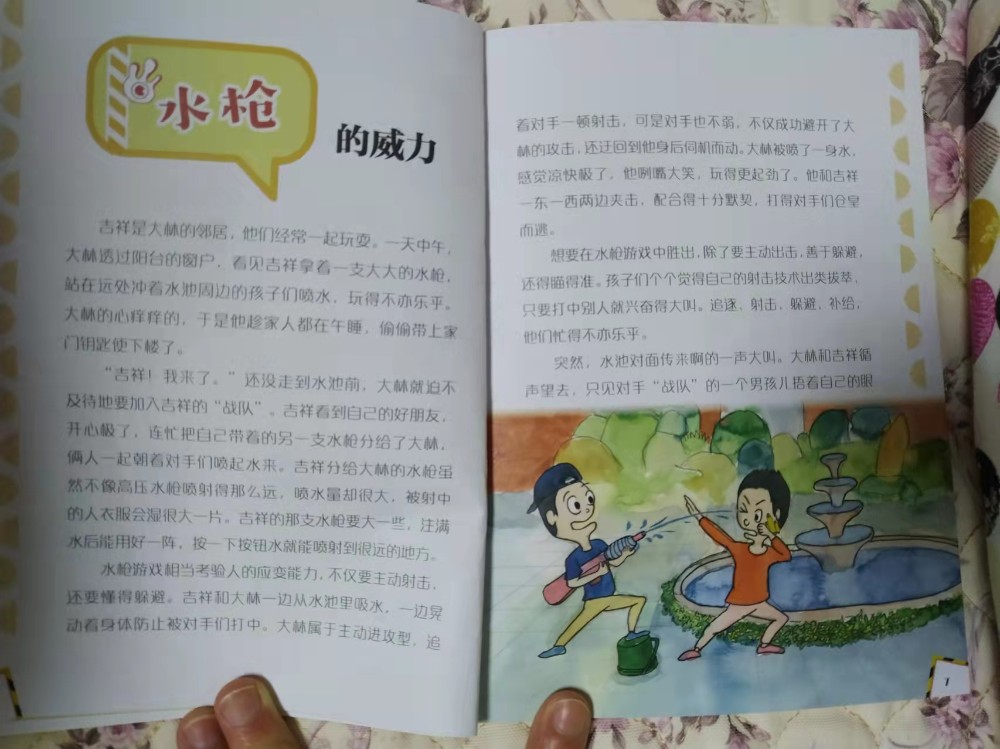 水枪
的威力
吉祥是大林的邻居，他们经常一起玩耍。一天中午，
大林透过阳台的窗户，看见吉祥拿着一支大大的水枪，
站在远处冲着水池周边的孩子们喷水，玩得不亦乐乎。
大林的心痒痒的，于是他趁家人都在午睡，偷偷带上家
门钥匙便下楼了。
“吉祥！我来了。”还没走到水池前，大林就迫不
及待地要加入吉祥的“战队”。吉祥看到自己的好朋友，
开心极了，连忙把自己带着的另一支水枪分给了大林，
俩人一起朝着对手们喷起水来。吉祥分给大林的水枪虽
然不像高压水枪喷射得那么远，喷水量却很大，被射中
的人衣服会湿很大一片。吉祥的那支水枪要大一些，注满
水后能用好一阵，按一下按钮水就能喷射到很远的地方。
水枪游戏相当考验人的应变能力，不仅要主动射击，
还要懂得躲避。吉祥和大林一边从水池里吸水，一边晃
动着身体防止被对手们打中。大林属于主动进攻型，追
着对手一顿射击，可是对手也不弱，不仅成功避开了大
林的攻击，还迂回到他身后伺机而动。大林被喷了一身水，
感觉凉快极了，他咧嘴大笑，玩得更起劲了。他和吉祥
一东一西两边夹击，配合得十分默契，打得对手们仓皇
而逃。
想要在水枪游戏中胜出，除了要主动出击，善于躲避，
还得瞄得准。孩子们个个觉得自己的射击技术出类拔萃，
只要打中别人就兴奋得大叫。追逐，射击，躲避，补给，
他们忙得不亦乐乎。
突然，水池对面传来啊的一声大叫。大林和吉祥循
声望去，只见对手“战队”的一个男孩儿捂着自己的眼
1